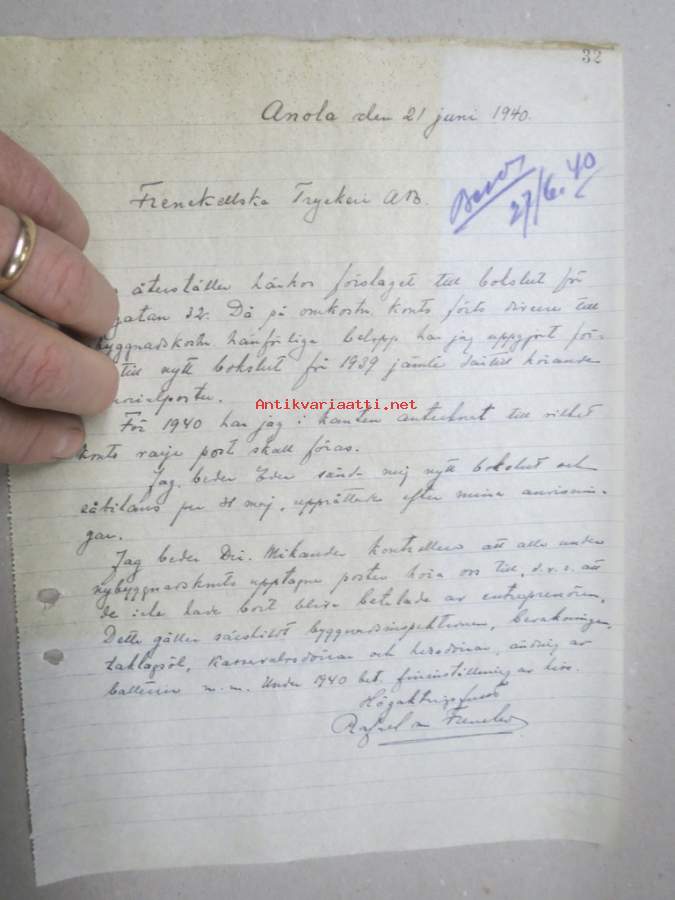 32
Anola den 21 juni 1940.
Besv.
27/6.40
Frenckellska Tryckeri A.B.
återställer härhos förslaget till bokslut för
gatan 32. Då på omkostn. konto förts diverse till
byggnadskostn. hänförliga belopp har jag uppgjort för-
till nytt bokslut för 1939 jämte därtill hörande
morialposter.
Antikvariaatti.net
För 1940 har jag i kanten antecknat till vilket
konto varje post skall föras.
Jag beder Eder sända mig nytt bokslut och
råbilans per 31 maj, upprättade efter mina anvisnin-
gar.
Jag beder Dir. Mikander kontrollera att alla under
nybyggnadskonto upptagna poster höra oss till, d.v.s. att
de icke hade bort bliva betalade av entreprenören.
Detta gäller särskilt byggnadsinspektionen, bevakningen,
taklagsöl, och hissdörrar, ändring av
m.m. Under 1940 bet. fininställning av hiss.
Högaktningsfullt
Rafael von Frenckell